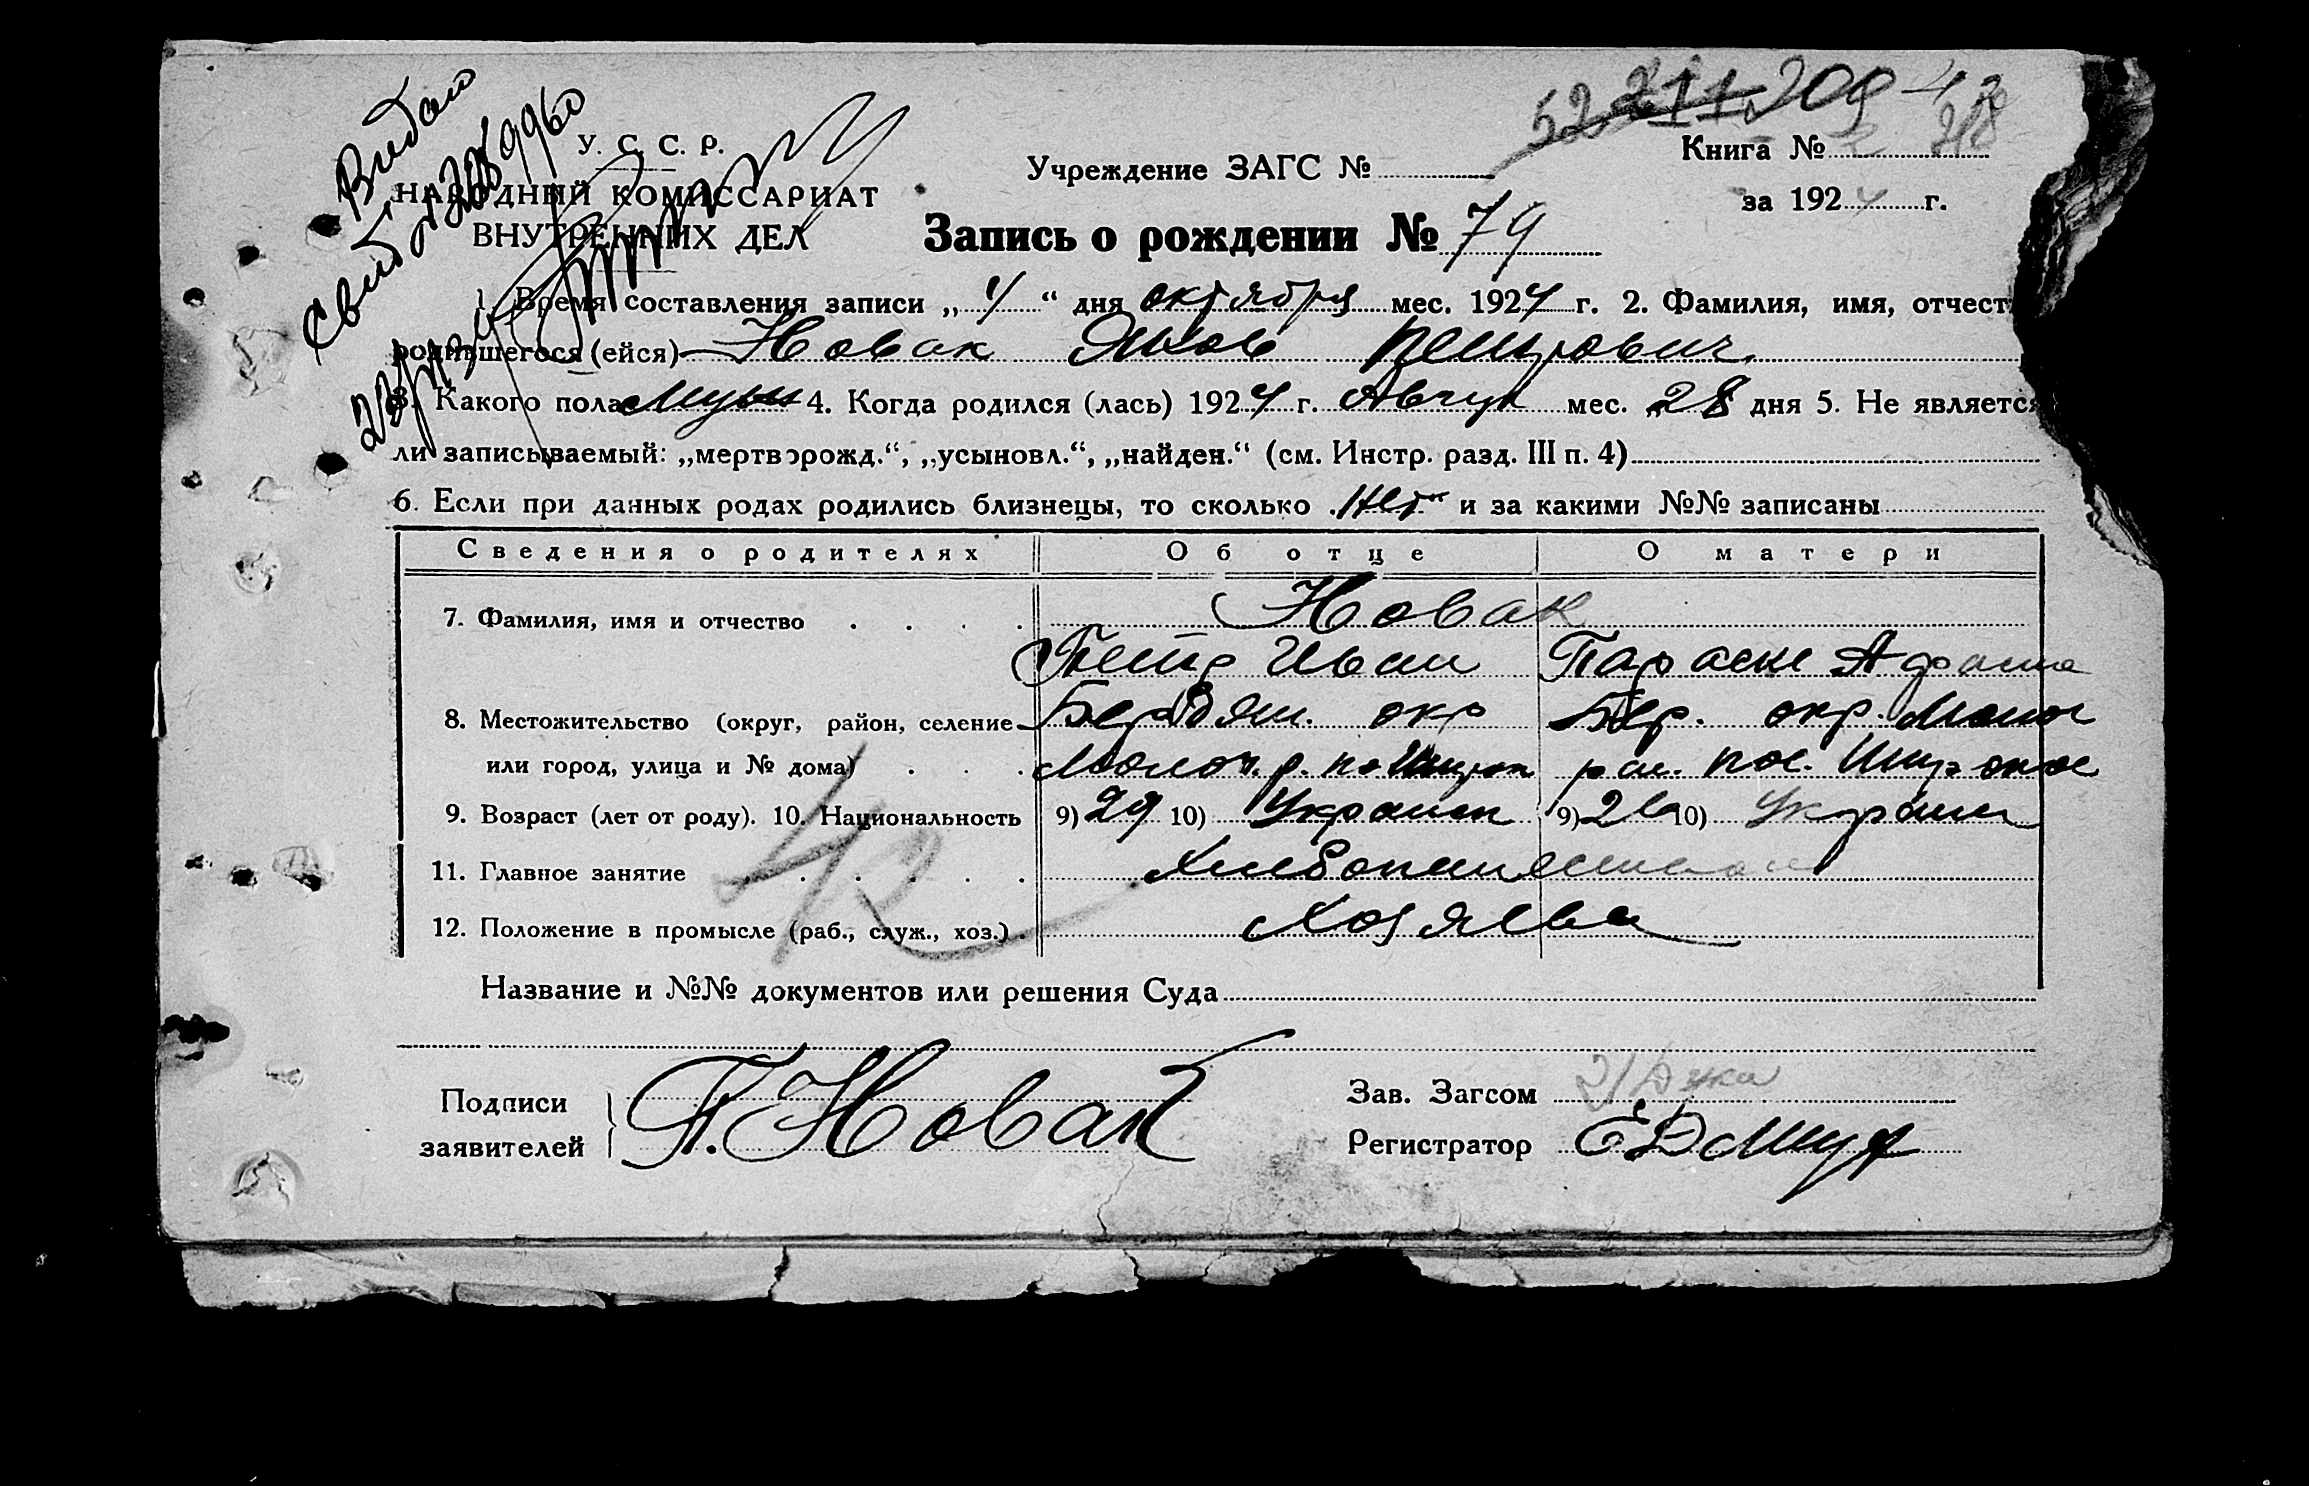 52 211 209
У. С. С. Р.
НАРОДНЫЙ КОМИССАРИАТ
ВНУТРЕННИХ ДЕЛ
Видан
Учреждение ЗАГС №
Книга №
за 1924 г.
Запись о рождении № 79
Время составления записи „4“ дня октября мес. 1924 г. 2. Фамилия, имя, отчест
родившегося (ейся) Новак Яков Петрович.
3. Какого пола Муж 4. Когда родился (лась) 1924 г. Август мес. 28 дня 5. Не является
ли записываемый: „мертворожд.“, „усыновл.“, „найден.“ (см. Инстр. разд. III п. 4)
6. Если при данных родах родились близнецы, то сколько „нет“ и за какими №№ записаны
Сведения о родителях Об отце О матери
7. Фамилия, имя и отчество . . . . Новак
Петр Иван Параске
8. Местожительство (округ, район, селение Бердян. окр Бер. окр. Молоч
или город, улица и № дома) . . . Молоч. р. рай. пос. Широкое
9. Возраст (лет от роду). 10. Национальность 9) 29 10) Украин 9) 26 10) Украин
11. Главное занятие . . . . . Хлебопашество
12. Положение в промысле (раб., служ., хоз.) . Хозяева
42
Название и №№ документов или решения Суда
Подписи
заявителей
П. Новак
Зав. Загсом
Регистратор